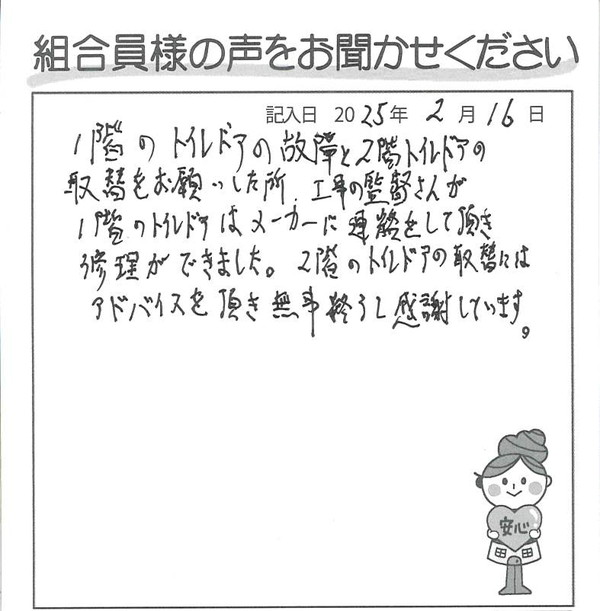 組合員様の声をお聞かせください
記入日 2025年 2月 16日
1階のトイレドアの故障と2階トイレドアの
取替をお願いした所、工事の監督さんが
1階のトイレドアはメーカーに連絡をして頂き
修理ができました。2階のトイレドアの取替には
アドバイスを頂き無事終了し感謝しています。
安心